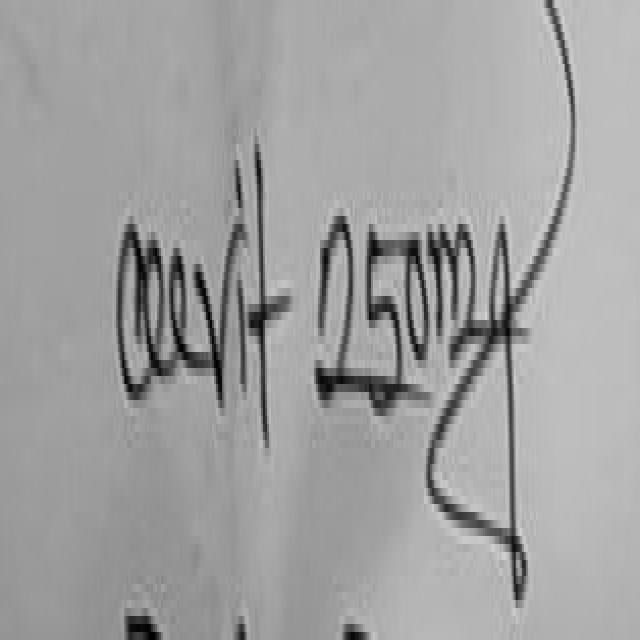 Ceevit 250mg